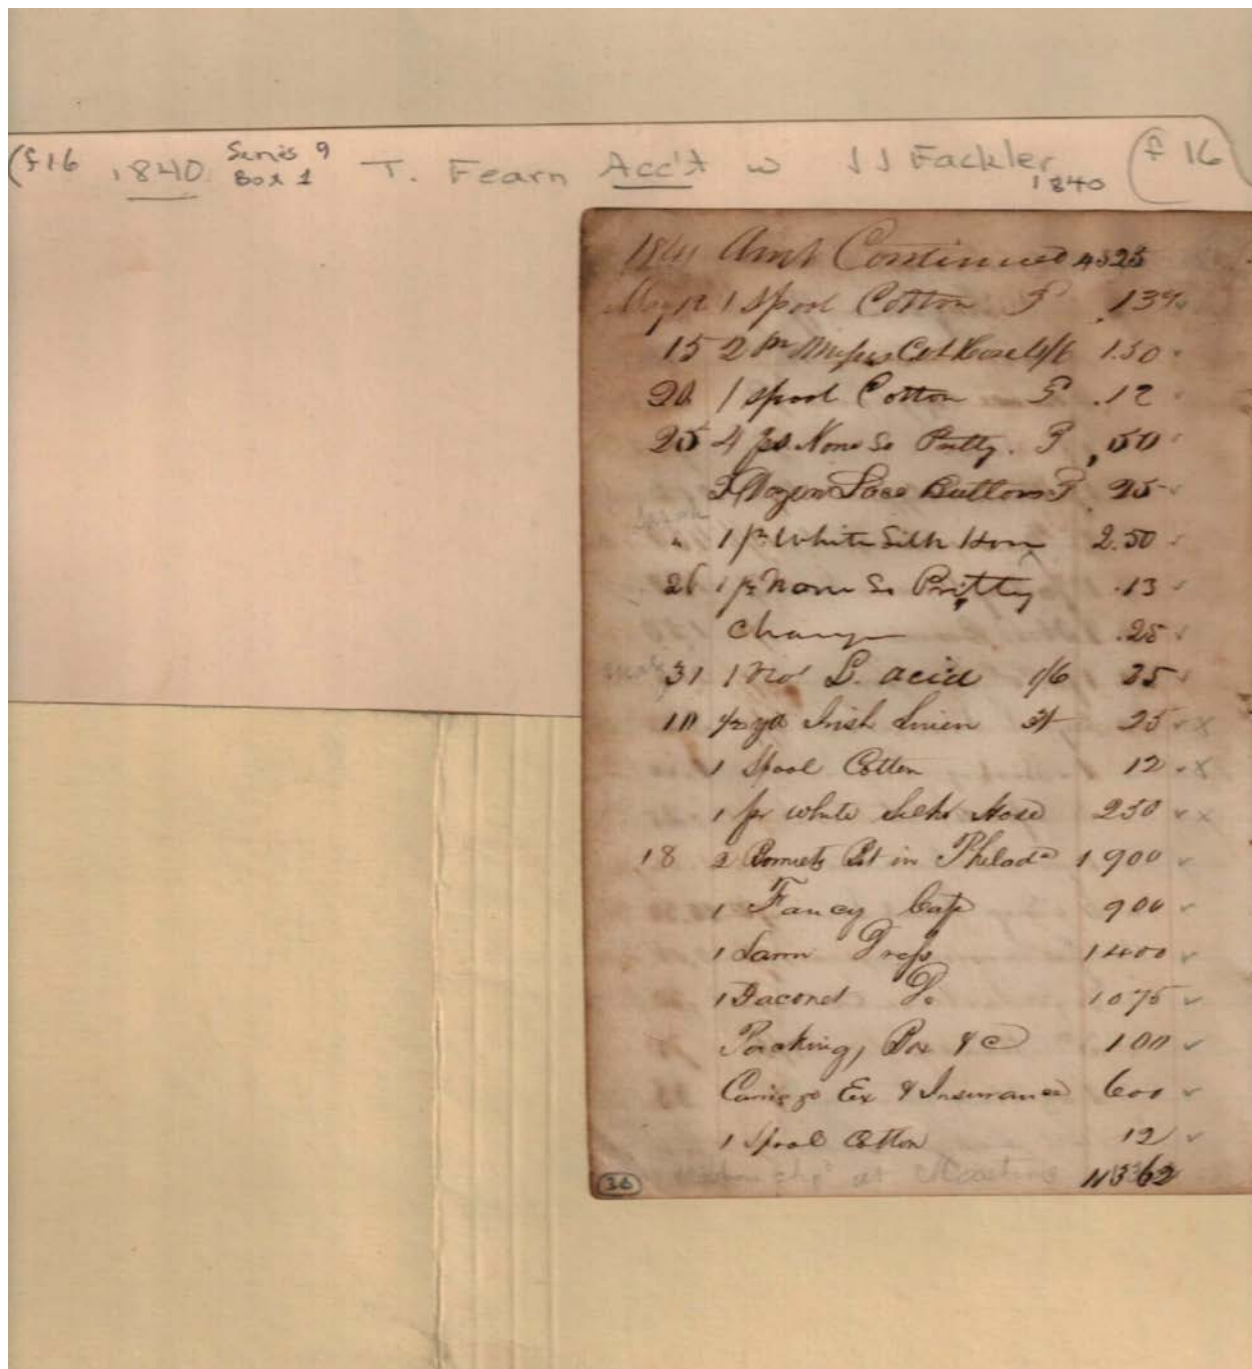 (f16 1840 Series 9 Box 1 T. Fearn Acc't w J J Fackler 1840 (f 16
1840 Amt Continued 4325
May 12 1 Spool Cotton P .13
15 2 pr Misses Col Hose 4/6 1.50
20 1 Spool Cotton P .12
25 4 ps. None So Pretty. P ,50
2 Dozen Lace Buttons P 25
" 1 pr White Silk Hose 2.50
26 1 ps None So Pritty .13
Change .25
31 1 L. acid 1/6 25
10 1/2 yd Irish Linen 3/ 25 x
1 Spool Cotton 12 x
1 pr white Silk Hose 250 x
18 2 Bonnets Bt in Philada 1900
1 Fancy Cap 900
1 Lawn Dress 1400
1 Jaconet Do 1075
Packing, Box &c 100
Carriage Ex & Insurance 600
1 Spool Cotton 12
at 11362
36